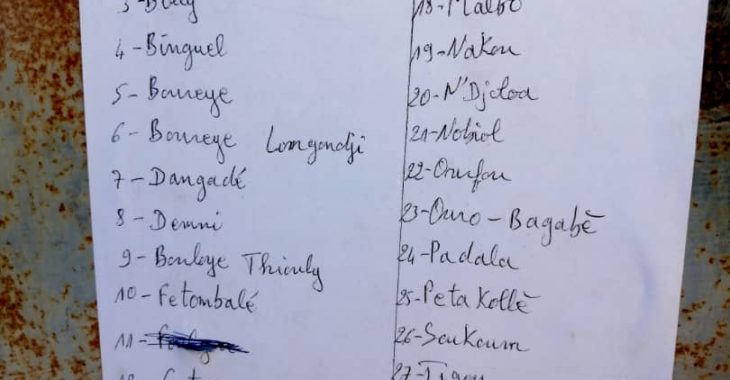 4 - Binguel
5 - Boureye
6 - Boureye Lomgondji
7 - Dangadé
8 - Demni
9 - Bouloye Thiouly
10 - Fetombalé
11 -
18 - Malbo
19 - Nakou
20 - N'Djoloa
21 - Nobiol
22 - Ourfou
23 - Ouro - Bagabè
24 - Padala
25 - Peta Kollè
26 - Soukoum
27 - Tigou